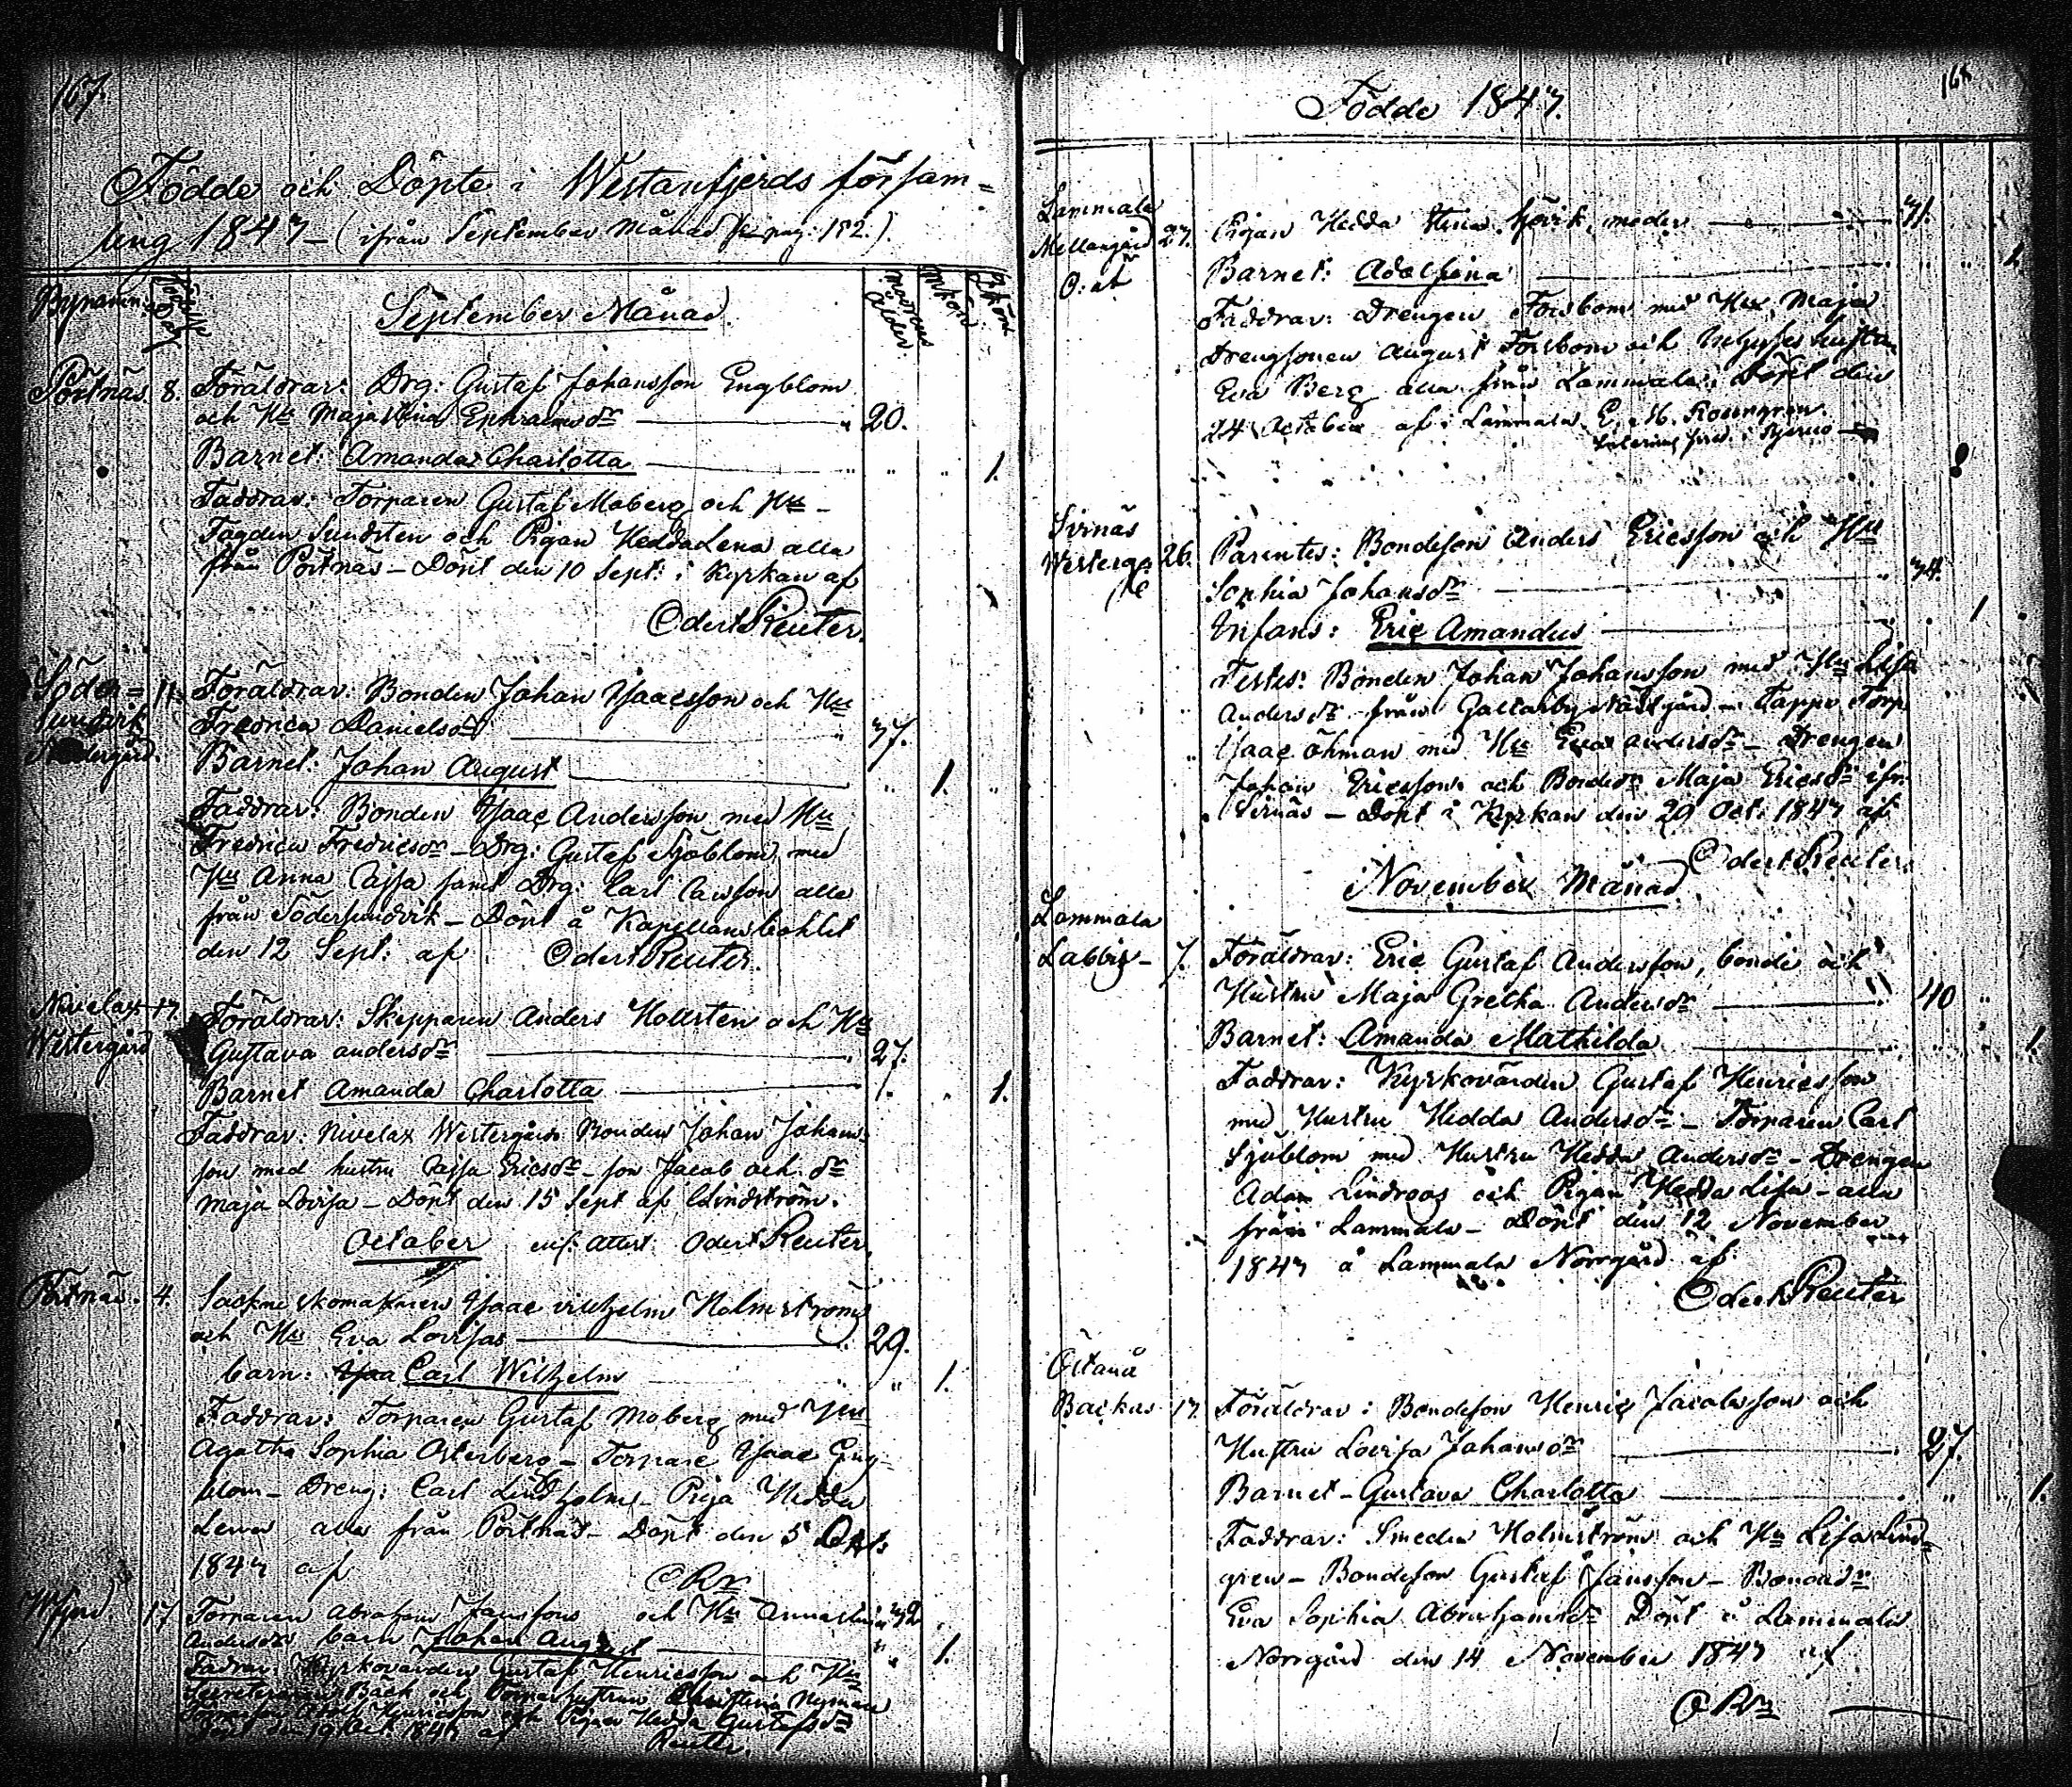 167.
Födde och Döpte i Westanfjerds försam=
ling 1847 – (ifrån September Månad pag: 182.)
Bynamn
Födelse Dag
September Månad.
modrens ålder
Mkön
Qkön
Pörtnäs 8. Föräldrar: Drg: Gustaf Johansson Engblom
och Hu Maja Stina Ephraimsdr 20.
Barnet: Amanda Charlotta 1.
Faddrar: Torparen Gustaf Moberg och Hu –
Sundsten och Pigan Hedda Lena alla
från Pörtnäs – Döpt den 10 Sept: i Kyrkan af
Odert Reuter.
Söder= 11. Föräldrar: Bonden Johan Isaacsson och Hu
sundvik Fredrica Danielsdr 37.
Barnet: Johan August 1.
Faddrar: Bonden Isaac Andersson med Hu
Fredrica Fredricsdr – Drg: Gustaf Sjöblom med
Hu Anna Cajsa samt Drg: Carl Carlsson alla
från Södersundvik – Döpt å Kapellansbohlet
den 12 Sept: af Odert Reuter.
Nivelax 17. Föräldrar: Skepparen Anders Hollsten och Hu
Westergård Gustava andersdr 27.
Barnet Amanda Charlotta 1.
Faddrar: Nivelax Westergårds Bonden Johan Johans
son med hustru Cajsa Ericsdr – son Jacob och dr
Maja Lovisa – Döpt den 15 Sept af Lindström.
October enl: attest Odert Reuter.
Pörtnäs. 4. Sockne skomakaren Isaac vilhelm Holmströms
och Hu Eva Lovisas 29.
barn: Isaa Carl Wilhelm 1.
Faddrar: Torparen Gustaf Moberg med Hu
Agatha Sophia Österberg – Torpare Isaac Eng
blom – Dreng: Carl Lindholm – Piga Hedda
Lena alla från Pörtnäs – Döpt den 5 Oct:
1847 af ORr
Wfjerd 17 Torparen Abraham Janssons och Hu Anna Stina
Andersdrs barn Johan August 1.
Fadrar: Kyrkovärden Gustaf Henricsson och Hu
Bäck och Torparhustrun Christina Nyman
och Pigan Hedda Gustafsdr
Döpt den 19 Oct. 1847 af Reuter.
168
Födde 1847.
Lammala
Mellangård 27. Pigan Hedda Stina moder
O: ät Barnet: Adolfina 1.
Faddrar: Drengen Forsbom med Hu Maja
Drengsonen August Forsbom och Inhyses hustru
Eva Berg alla från Lammala. Döpt den
24 October af i Lammala. E. M. Rosengren.
Sirnäs
Westerg: 26. Parentes: Bondeson Anders Ericsson och Hu
Sophia Johansdr
Infans: Eric Amandus 1
Testes: Bonden Johan Johansson med Hu Lisa
Andersdr från Galtarby Nästgård – Tappo Torp
Isaac Öhman med Hu Eva andersdr – Drengen
Johan Ericsson och Bondedr Maja Ericsdr ifr.
Sirnäs – Döpt i Kyrkan den 29 Oct: 1847 af
Odert Reuter.
November Månad
Lammala
Labbis – 7. Föräldrar: Eric Gustaf Andersson, bonde och
Hustru Maja Gretha Andersdr 40
Barnet: Amanda Mathilda 1.
Faddrar: Kyrkovärden Gustaf Henricsson
med Hustru Hedda Andersdr – Torparen Carl
Sjöblom med Hustru Hedda Andersdr – Drengen
Adam Lindroos och Pigan Hedda Lisa – alla
från Lammala – Döpt den 12 November
1847 å Lammala Norrgård af
Odert Reuter
Östanå
Backas 17. Föräldrar: Bondeson Henric Jacobsson och
Hustru Lovisa Johansdr 27.
Barnet – Gustava Charlotta 1.
Faddrar: Smeden Holmström och Hu Lisa Lind=
gren – Bondeson Gustaf Jansson – Bondedr
Eva Sophia Abrahamsdr Döpt å Lammala
Norrgård den 14 November 1847 af
ORr